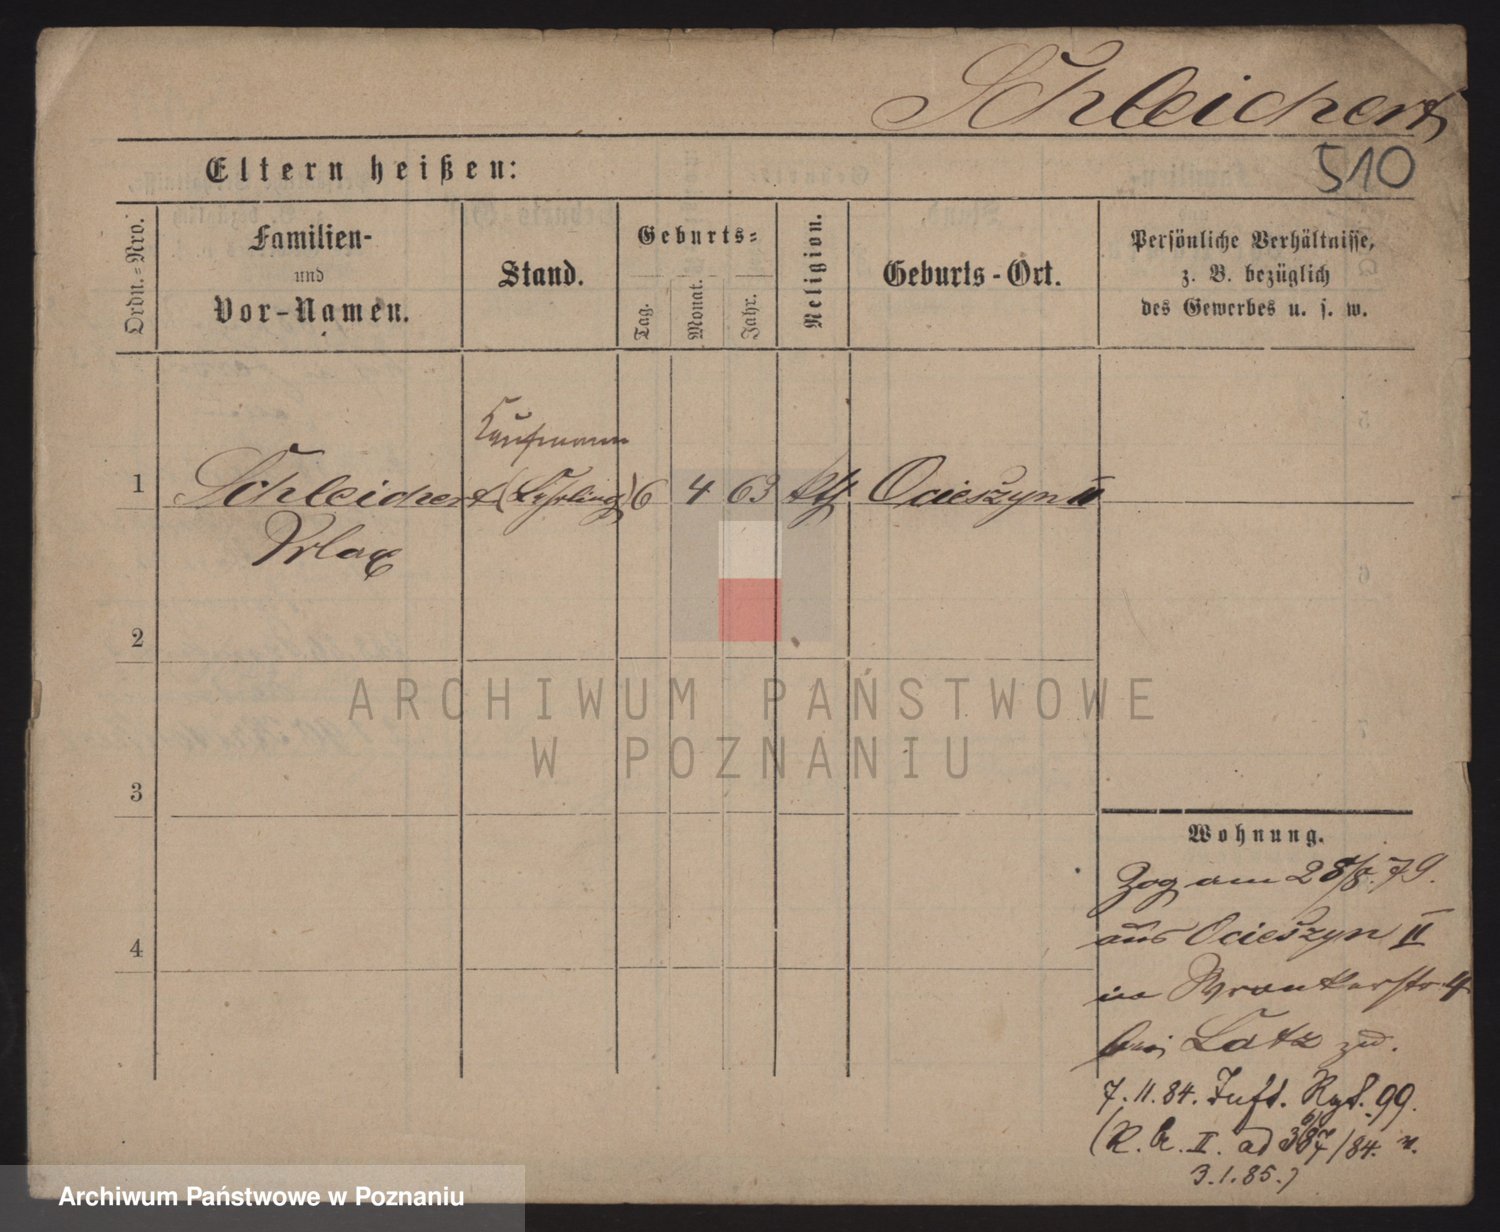 Schleichert
510
Eltern heißen:
Ordn.=Nro.
Familien-
und
Vor-Namen.
Stand.
Geburts=
Tag.
Monat.
Jahr.
Religion.
Geburts-Ort.
Persönliche Verhältnisse,
z. B. bezüglich
des Gewerbes u. s. w.
Kaufmann
1 Schleichert (Lehrling) 6 4 63 kth Ocieszyn II
2
3
4
Wohnung.
Zog am 28/8. 79.
aus Ocieszyn II
in Wronkerstr 4
bei Latz zu.
7. 11. 84. Inft. Rgt. 99.
(K. Br. II. ad /84. v.
3. 1. 85.)
ARCHIWUM PAŃSTWOWE
W POZNANIU
Archiwum Państwowe w Poznaniu